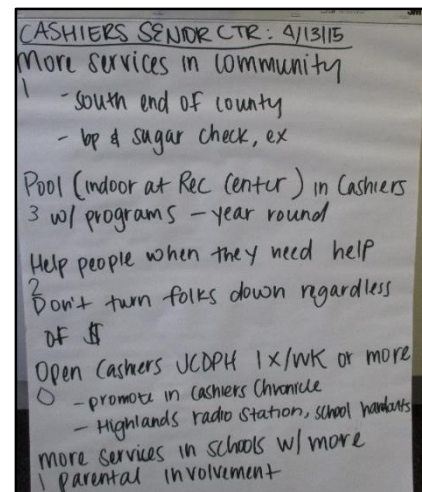 CASHIERS SENIOR CTR: 4/13/15
More services in community
1
- South end of county
- bp & sugar check, ex
Pool (indoor at Rec Center) in Cashiers
3 w/ programs - year round
Help people when they need help
2
Don't turn folks down regardless
of $
Open Cashiers JCDPH 1x/wk or more
0 - promote in Cashiers Chronicle
- Highlands radio station, school handouts
more services in schools w/ more
1 parental involvement